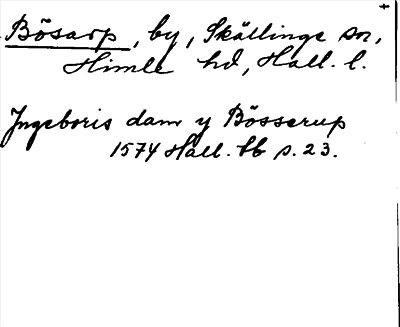 Bösarp, by, Skällinge sn,
Himle hd, Hall. l.
Ingeboris dam y Bösserup
1574 Hall. bb s. 23.